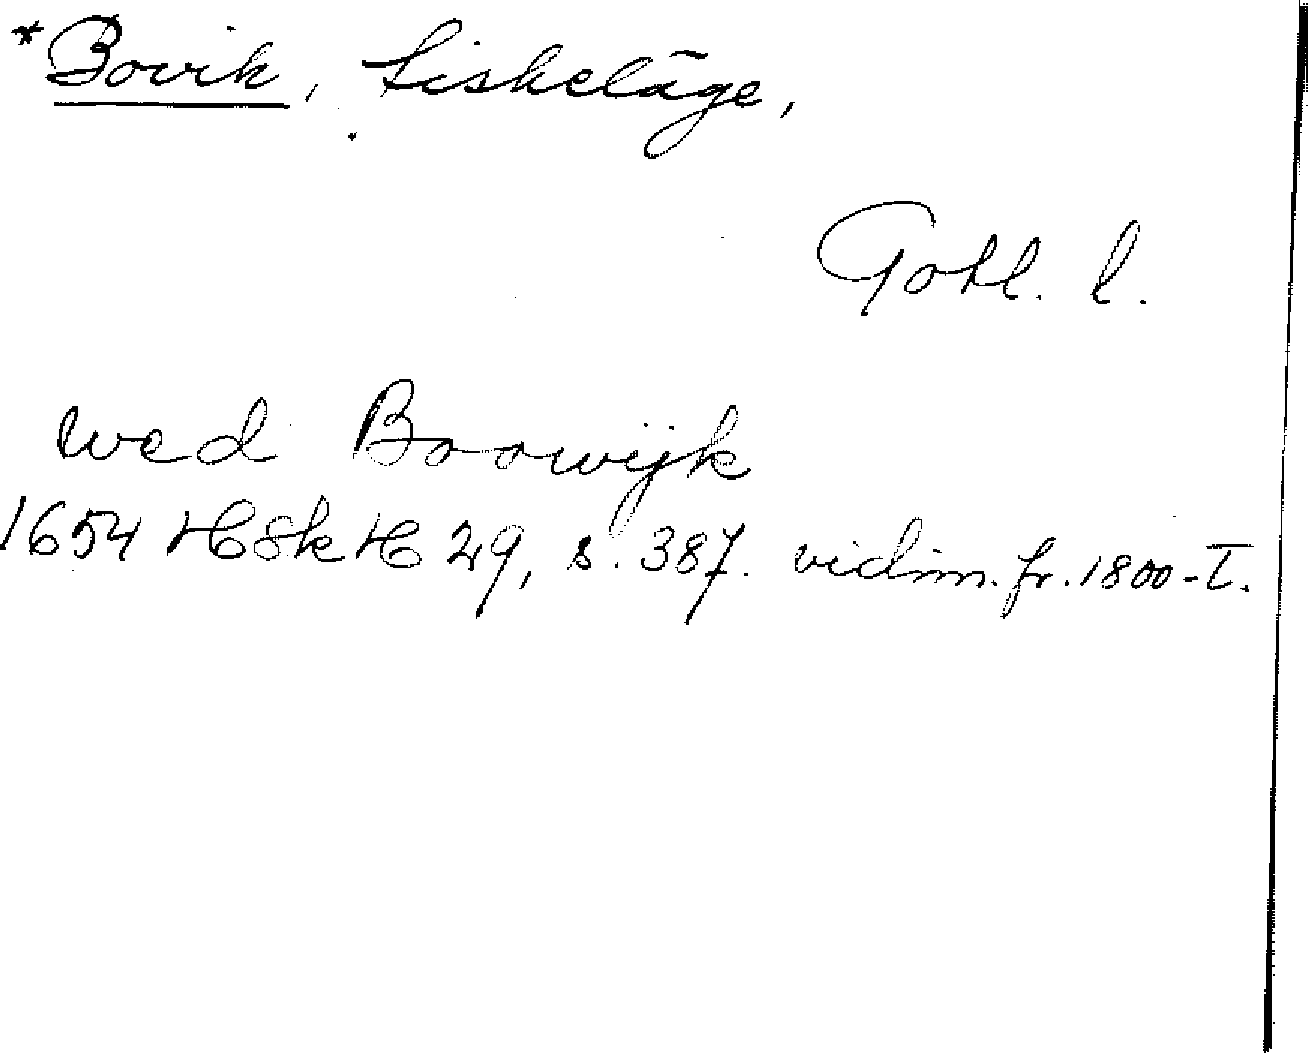 *Bovik, fiskeläge,
Gotl. l.
wed Boowijk
1654 HSkH 29, s. 387. vidim. fr. 1800-T.